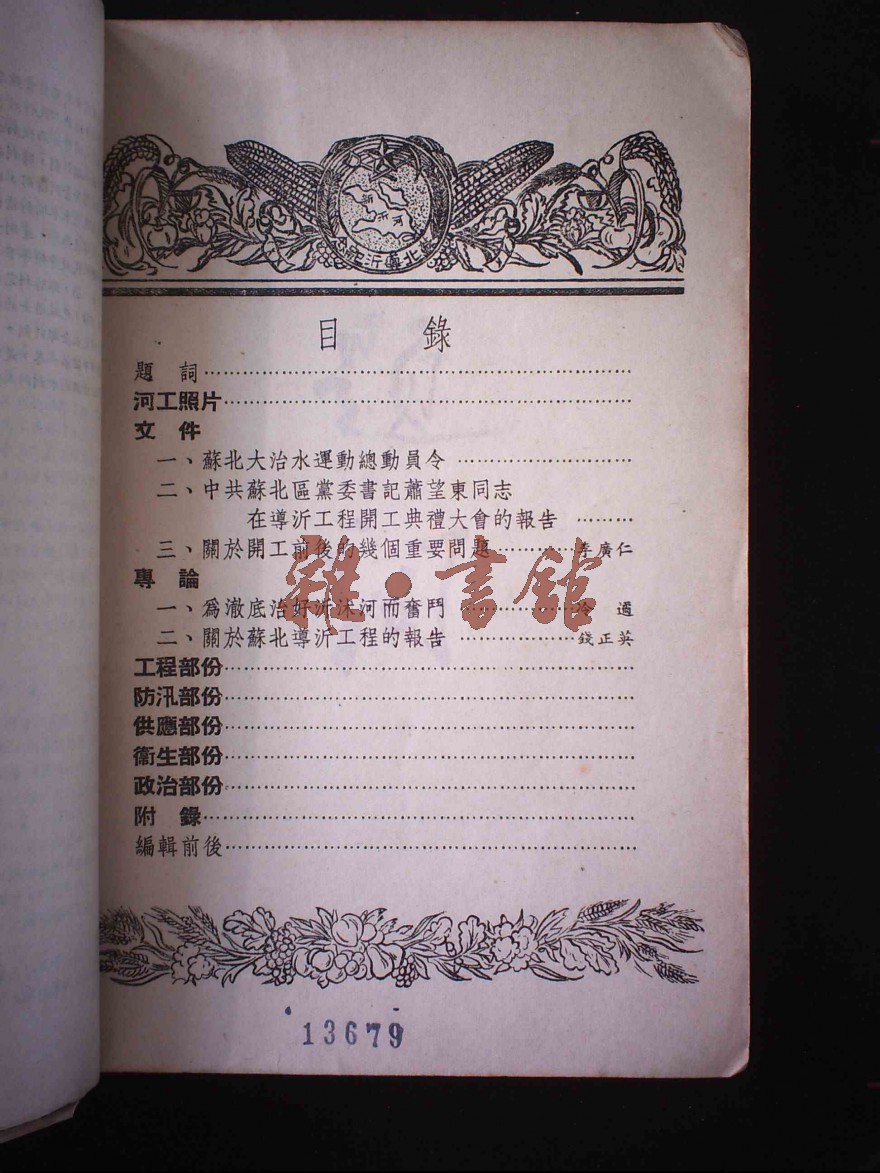 蘇北導沂紀念
沂河
目錄
題詞
河工照片
文件
一、蘇北大治水運動總動員令
二、中共蘇北區黨委書記蕭望東同志
在導沂工程開工典禮大會的報告
三、關於開工前後的幾個重要問題 李廣仁
專論
一、爲澈底治好沂沭河而奮鬥 冷遹
二、關於蘇北導沂工程的報告 錢正英
工程部份
防汛部份
供應部份
衞生部份
政治部份
附錄
編輯前後
13679
雜·書館